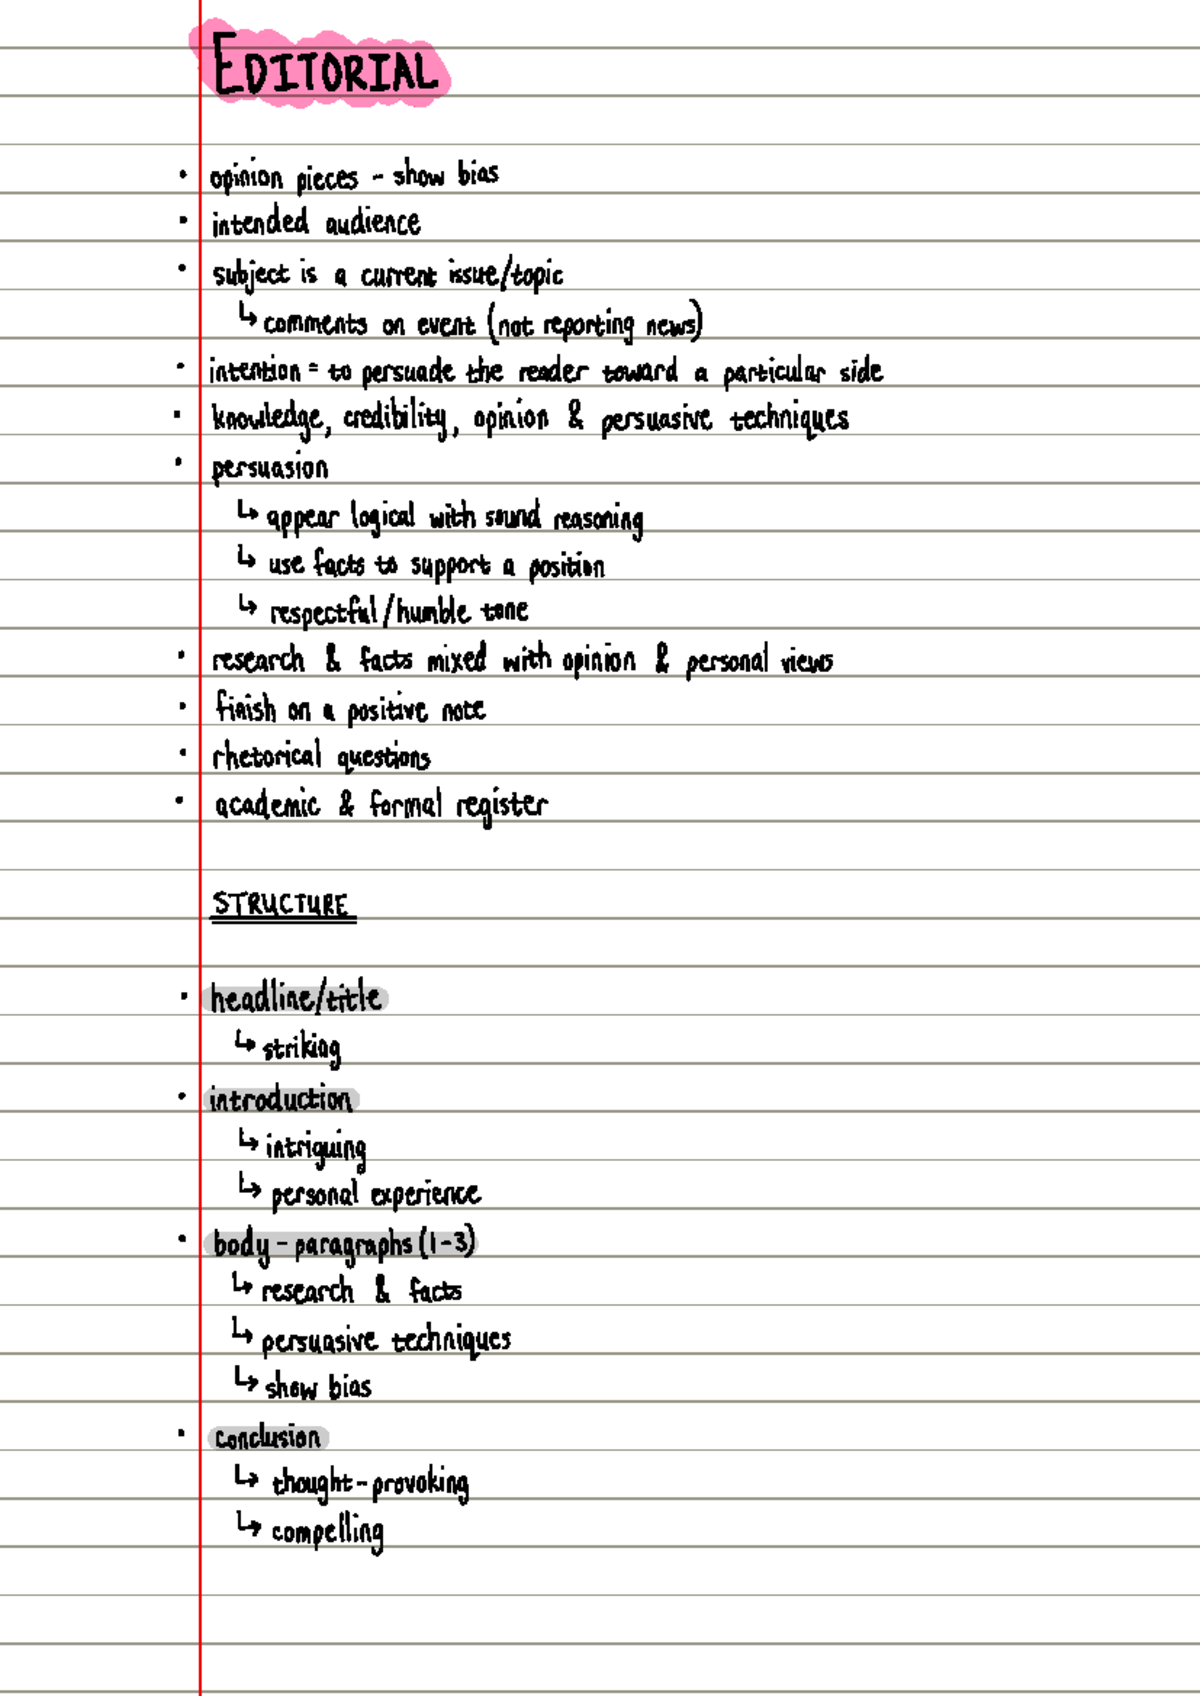 EDITORIAL
• opinion pieces - show bias
• intended audience
• subject is a current issue/topic
↳ comments on event (not reporting news)
• intention = to persuade the reader toward a particular side
• knowledge, credibility, opinion & persuasive techniques
• persuasion
↳ appear logical with sound reasoning
↳ use facts to support a position
↳ respectful/humble tone
• research & facts mixed with opinion & personal views
• finish on a positive note
• rhetorical questions
• academic & formal register
STRUCTURE
• headline/title
↳ striking
• introduction
↳ intriguing
↳ personal experience
• body - paragraphs (1-3)
↳ research & facts
↳ persuasive techniques
↳ show bias
• conclusion
↳ thought-provoking
↳ compelling